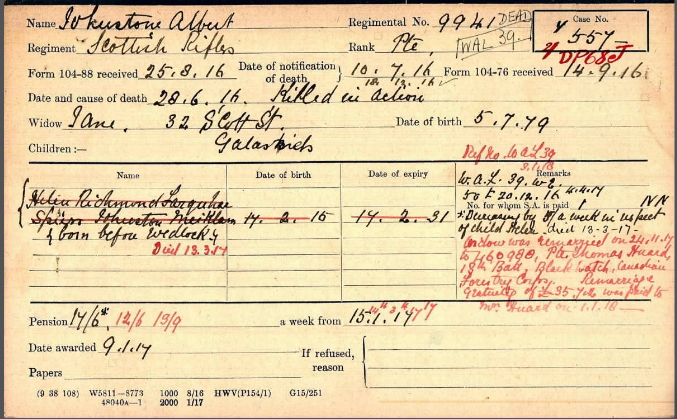 Name Johnstone Albert Regimental No. 9941 DEAD Case No.
Regiment Scottish Rifles Rank Pte, WAL 39. 4/557
4/DP68J
Form 104-88 received 25.8.16 Date of notification of death, } 10.7.16 Form 104-76 received 14.9.16
Date and cause of death 28.6.16. Killed in action
Widow Jane. 32 Scott St. Date of birth 5.7.79
Children:— Galashiels
Ref No. WAL 39
3.1.18
Name Date of birth Date of expiry Remarks
W.A.L. 39. W.E.
Helen Richmond 50 F 20.12.16 4.4.17
No. for whom S.A. is paid 1
Johnston 17. 2. 15 17. 2. 31 * Decreasing by a week in respect
born before wedlock of child Helen died 13-3-17-
Died 13.3.17 Widow was remarried on 24.11.17
to Pte. Thomas Huard,
13th Batt. Black Watch, Canadian
Forestry Corps. Remarriage
Gratuity of £35. was paid to
Mrs Huard on 1.1.18
Pension 17/6* 12/6 13/9 a week from 15.1.17
Date awarded 9.1.17 If refused, reason
Papers
(9 38 108) W5811—8773 1000 8/16 HWV(P154/1) G15/251
48040A—1 2000 1/17